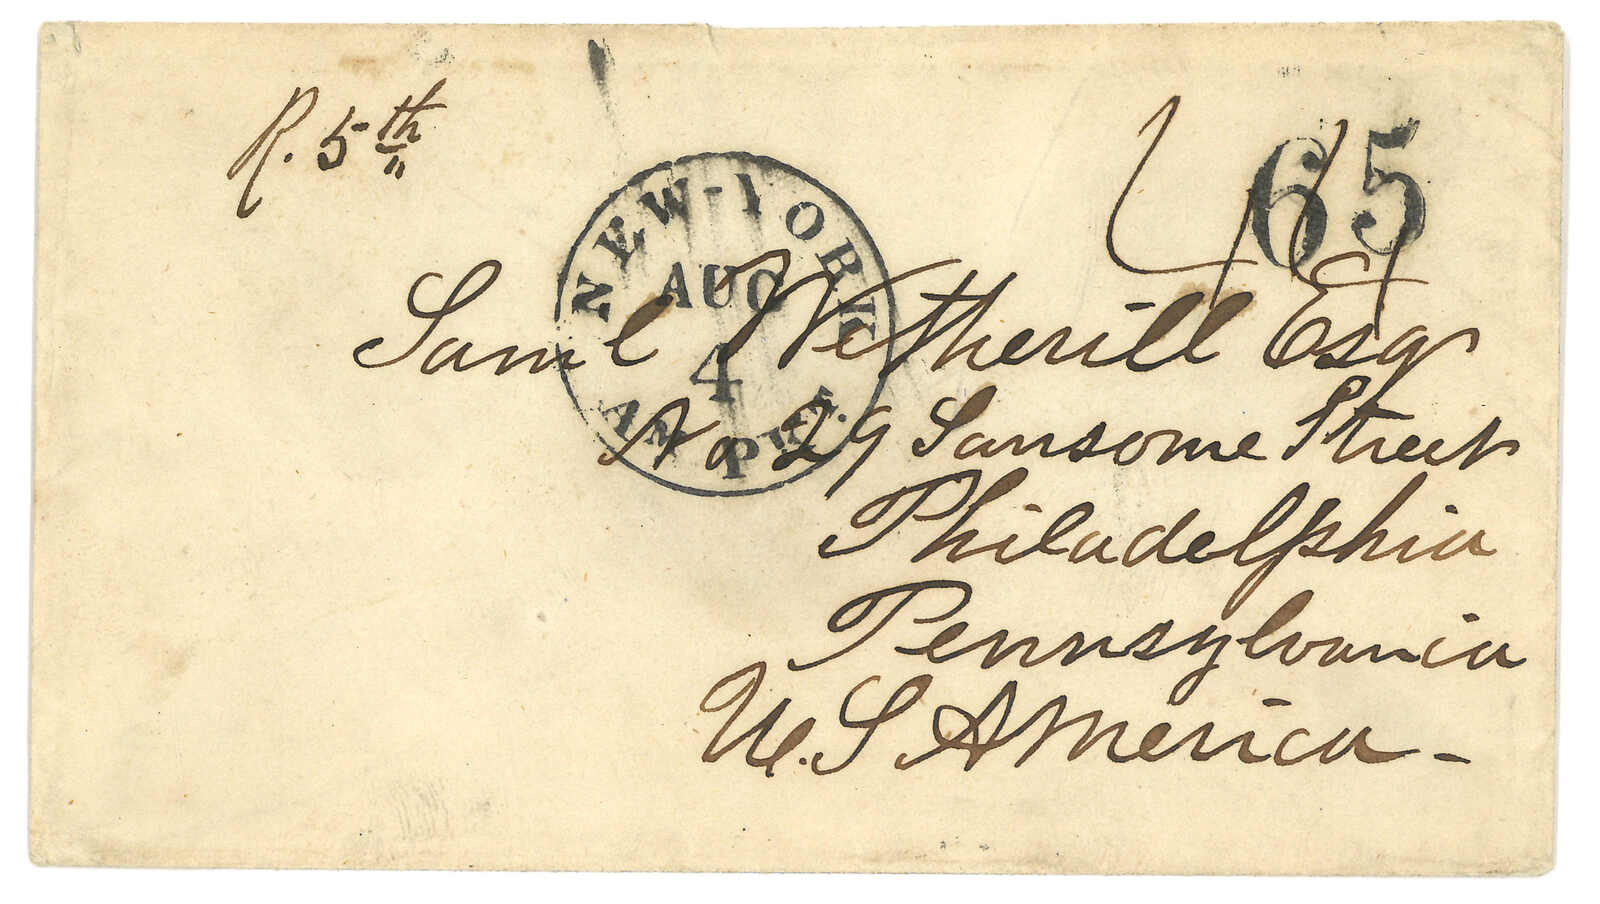 R. 5th
65
NEW-YORK
AUG
4
AM. PKT.
Saml Wetherill Esqr
No 29 Sansome Street
Philadelphia
Pennsylvania
U.S America -